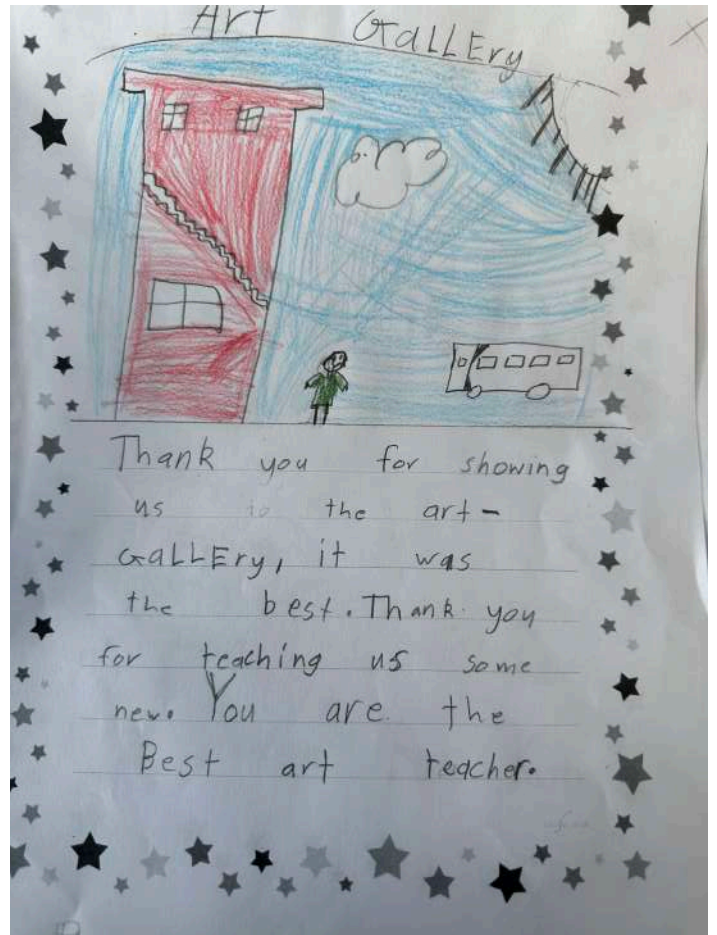 Art GaLLEry
Thank you for showing
us to the art-
GaLLEry, it was
the best. Thank you
for teaching us some
new. You are the
Best art teacher.